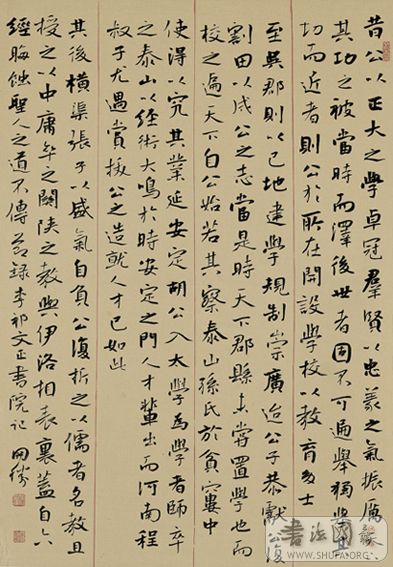 昔公以正大之學卓冠羣賢以忠義之氣振厲
其功之被當時而澤後世者固不可遍舉獨其
切而近者則公於所在開設學校以教育多士
至吳郡則以己地建學規制崇廣迨公子恭獻公復
割田以成公之志當是時天下郡縣未嘗置學也而
校之遍天下自公始若其察泰山孫氏於貧窶中
使得以究其業延安定胡公入太學為學者師卒
之泰山以經術大鳴於時安定之門人才輩出而河南程
叔子尤遇賞拔公之造就人才已如此
其後橫渠張子以盛氣自負公復折之以儒者名教且
授之以中庸卒之關陝之教與伊洛相表裏蓋自六
經晦蝕聖人之道不傳 節錄李祁文正書院記
書法國
WWW.SHUFA.ORG